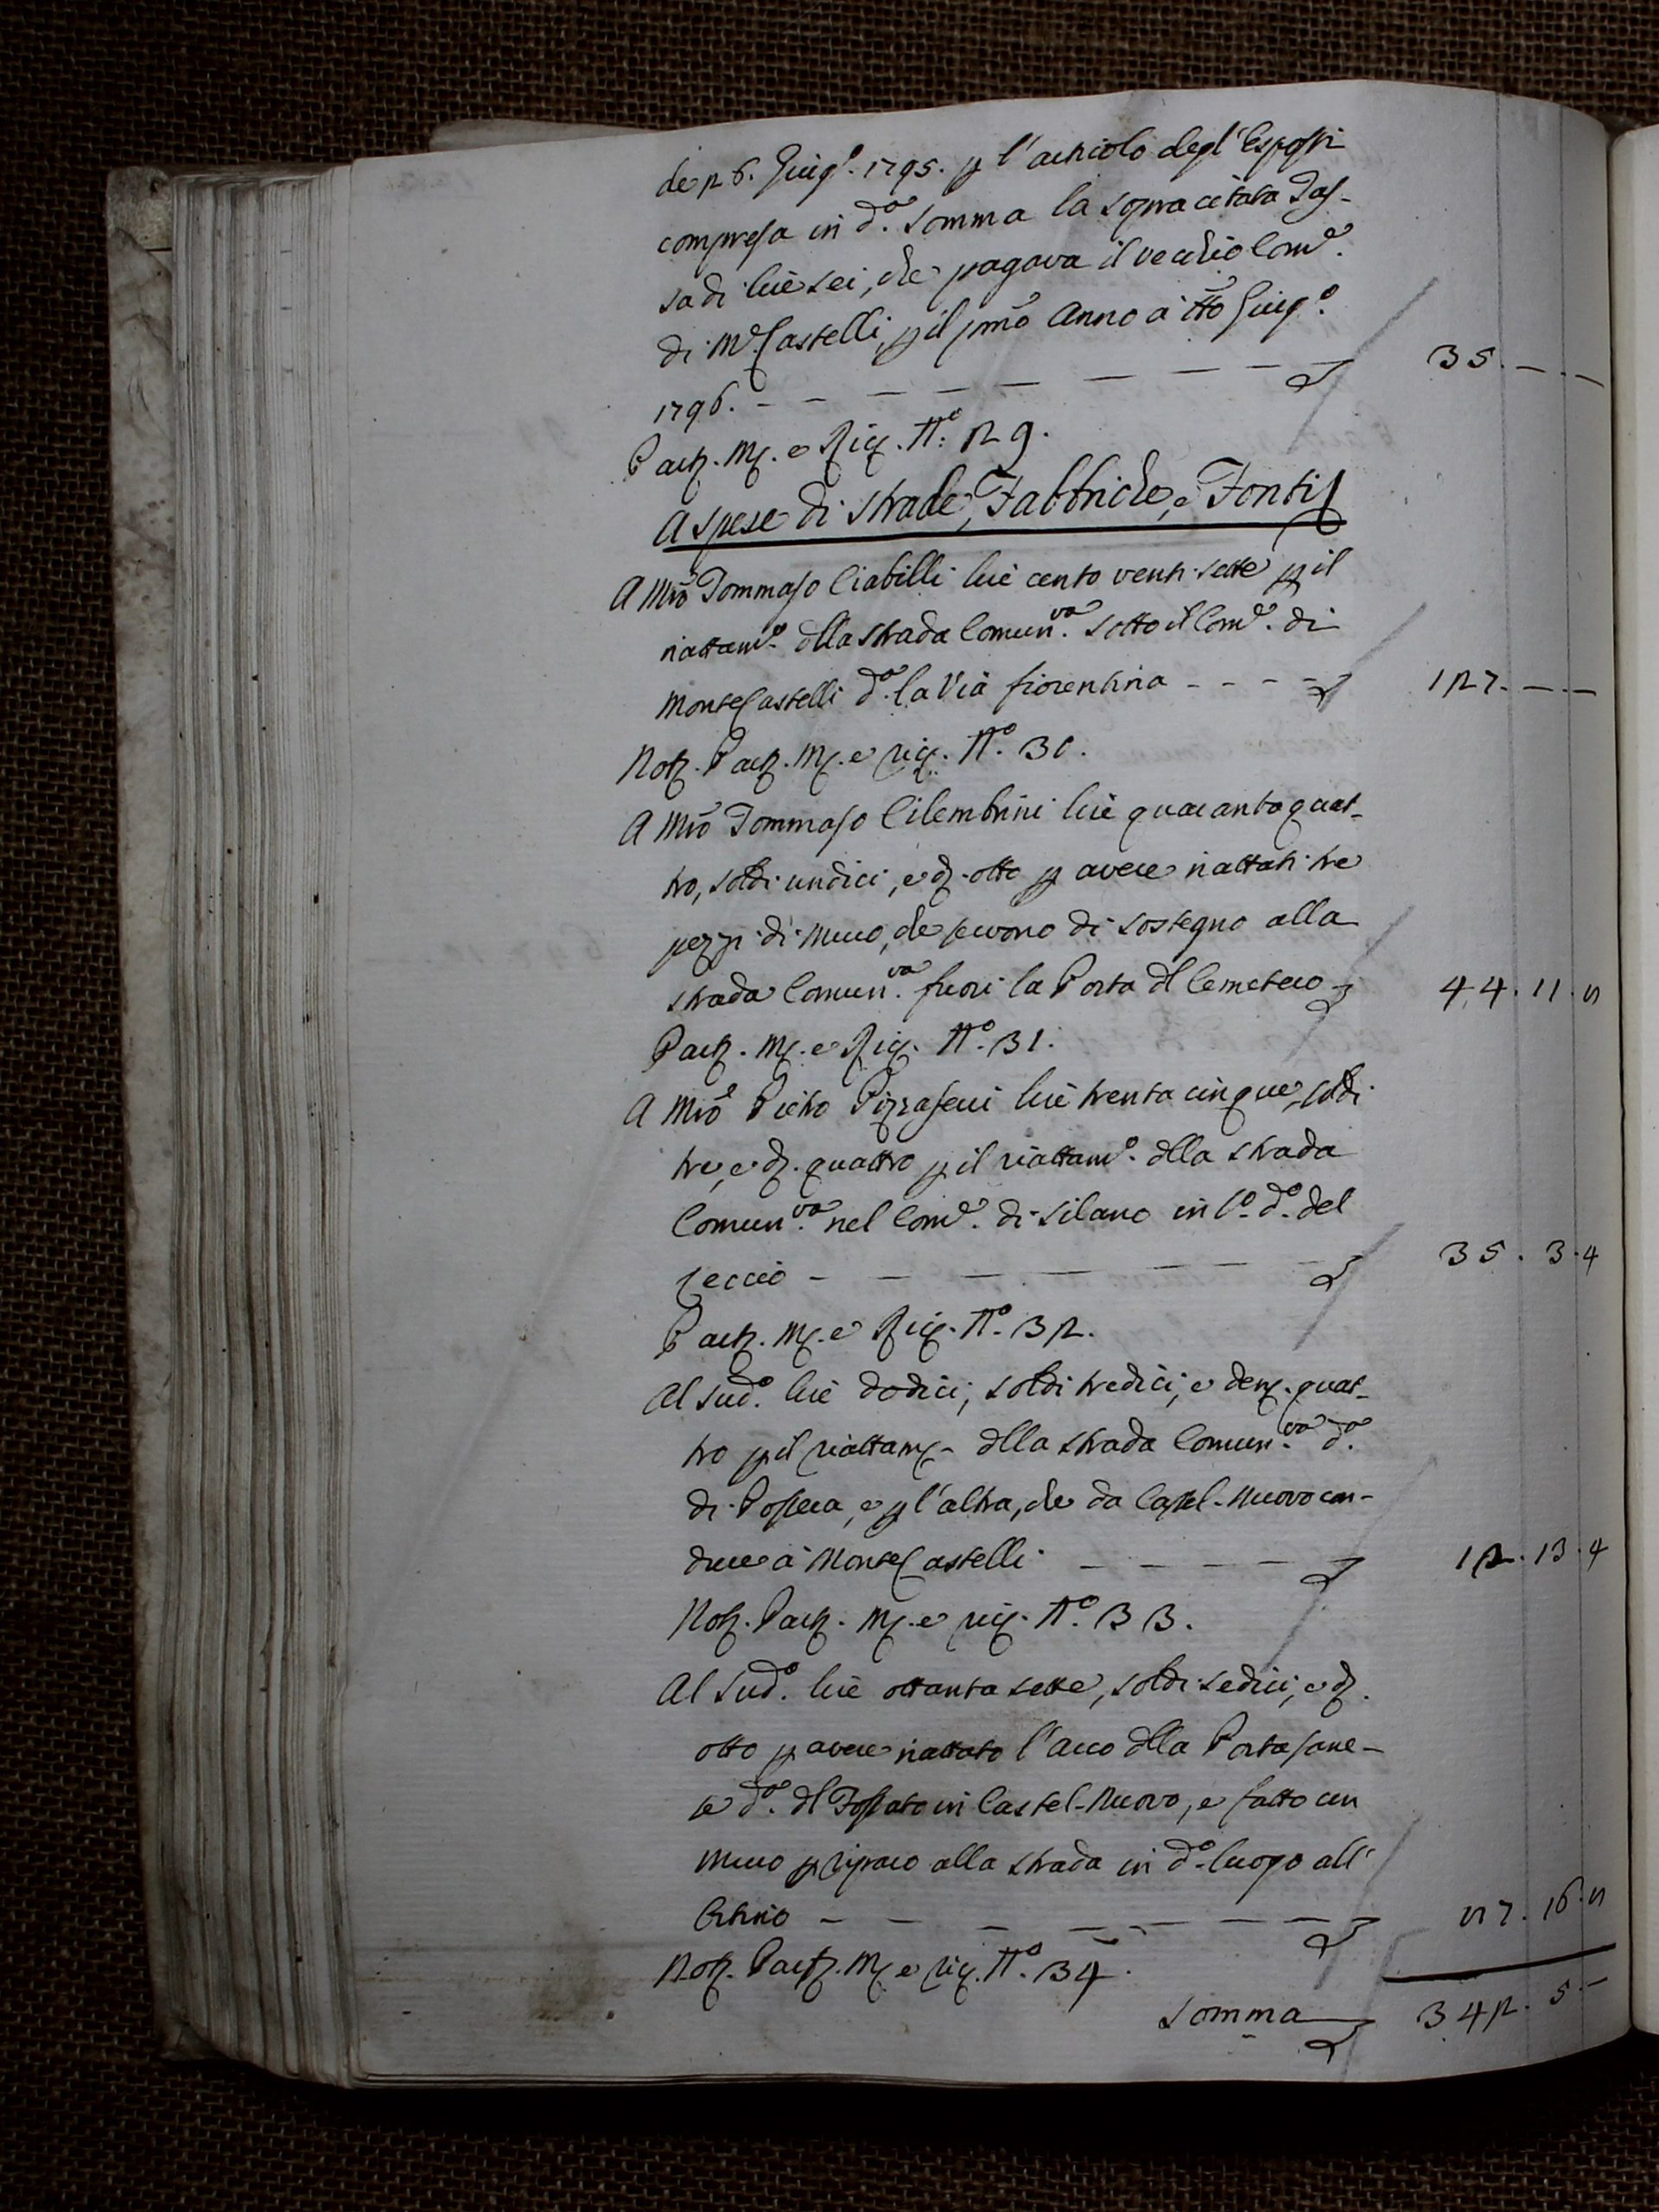 de 26. Giug.º 1795. p l'articolo degl'Esposti
compresa in d.ª somma la sopracitata Tas-
sa di lire sei, che pagava il vecchio Com.e
di M.e Castelli, p il pmo Anno a tto Giug.º
1796. - - - - - - - - 35. -. -
Part. M. e Ric. N.º 29.
A spese di Strade, Fabbriche, e Fonti
A Mro Tommaso Ciabilli lire cento venti sette p il
riattam.º dlla strada Comun.va sotto il Com.e di
MonteCastelli d.ª la Via fiorentina - - - - 127. -. -
Not. Part. M. e ric. N.º 30.
A Mro Tommaso Cilembrini lire quarantaquat-
tro, soldi undici, e d. otto p avere riattati tre
pezzi di muro, che servono di sostegno alla
strada Comun.va fuori la Porta dl Cemetero 44. 11. 8
Part. M. e Ric. N.º 31.
A Mro Pietro Pizzaferri lire trenta cinque, soldi
tre, e d. quattro p il riattam.º dlla strada
Comun.va nel Com.e di Silano in l.º d.º del
Leccio - - - - - - - 35. 3. 4
Part. M. e Ric. N.º 32.
Al sud.º lire dodici, soldi tredici, e den. quat-
tro p il riattam. dlla strada Comun.va d.ª
di Possera, e p l'altra, che da Castel-Nuovo con-
duce a MonteCastelli - - - - - 12. 13. 4
Not. Part. M. e ric. N.º 33.
Al Sud.º lire ottanta sette, soldi sedici, e d.
otto p avere riattato l'arco dlla Porta sane-
se d.ª dl Fossato in Castel-Nuovo, e fatto un
muro p riparo alla strada in d.º luogo all'
Ortino - - - - - - - - 87. 16. 8
Not. Part. M. e ric. N.º 34.
Somma 342. 5. -